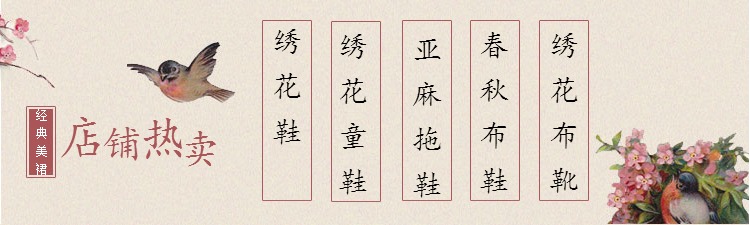 经典美裙
店铺热卖
绣花鞋
绣花童鞋
亚麻拖鞋
春秋布鞋
绣花布靴